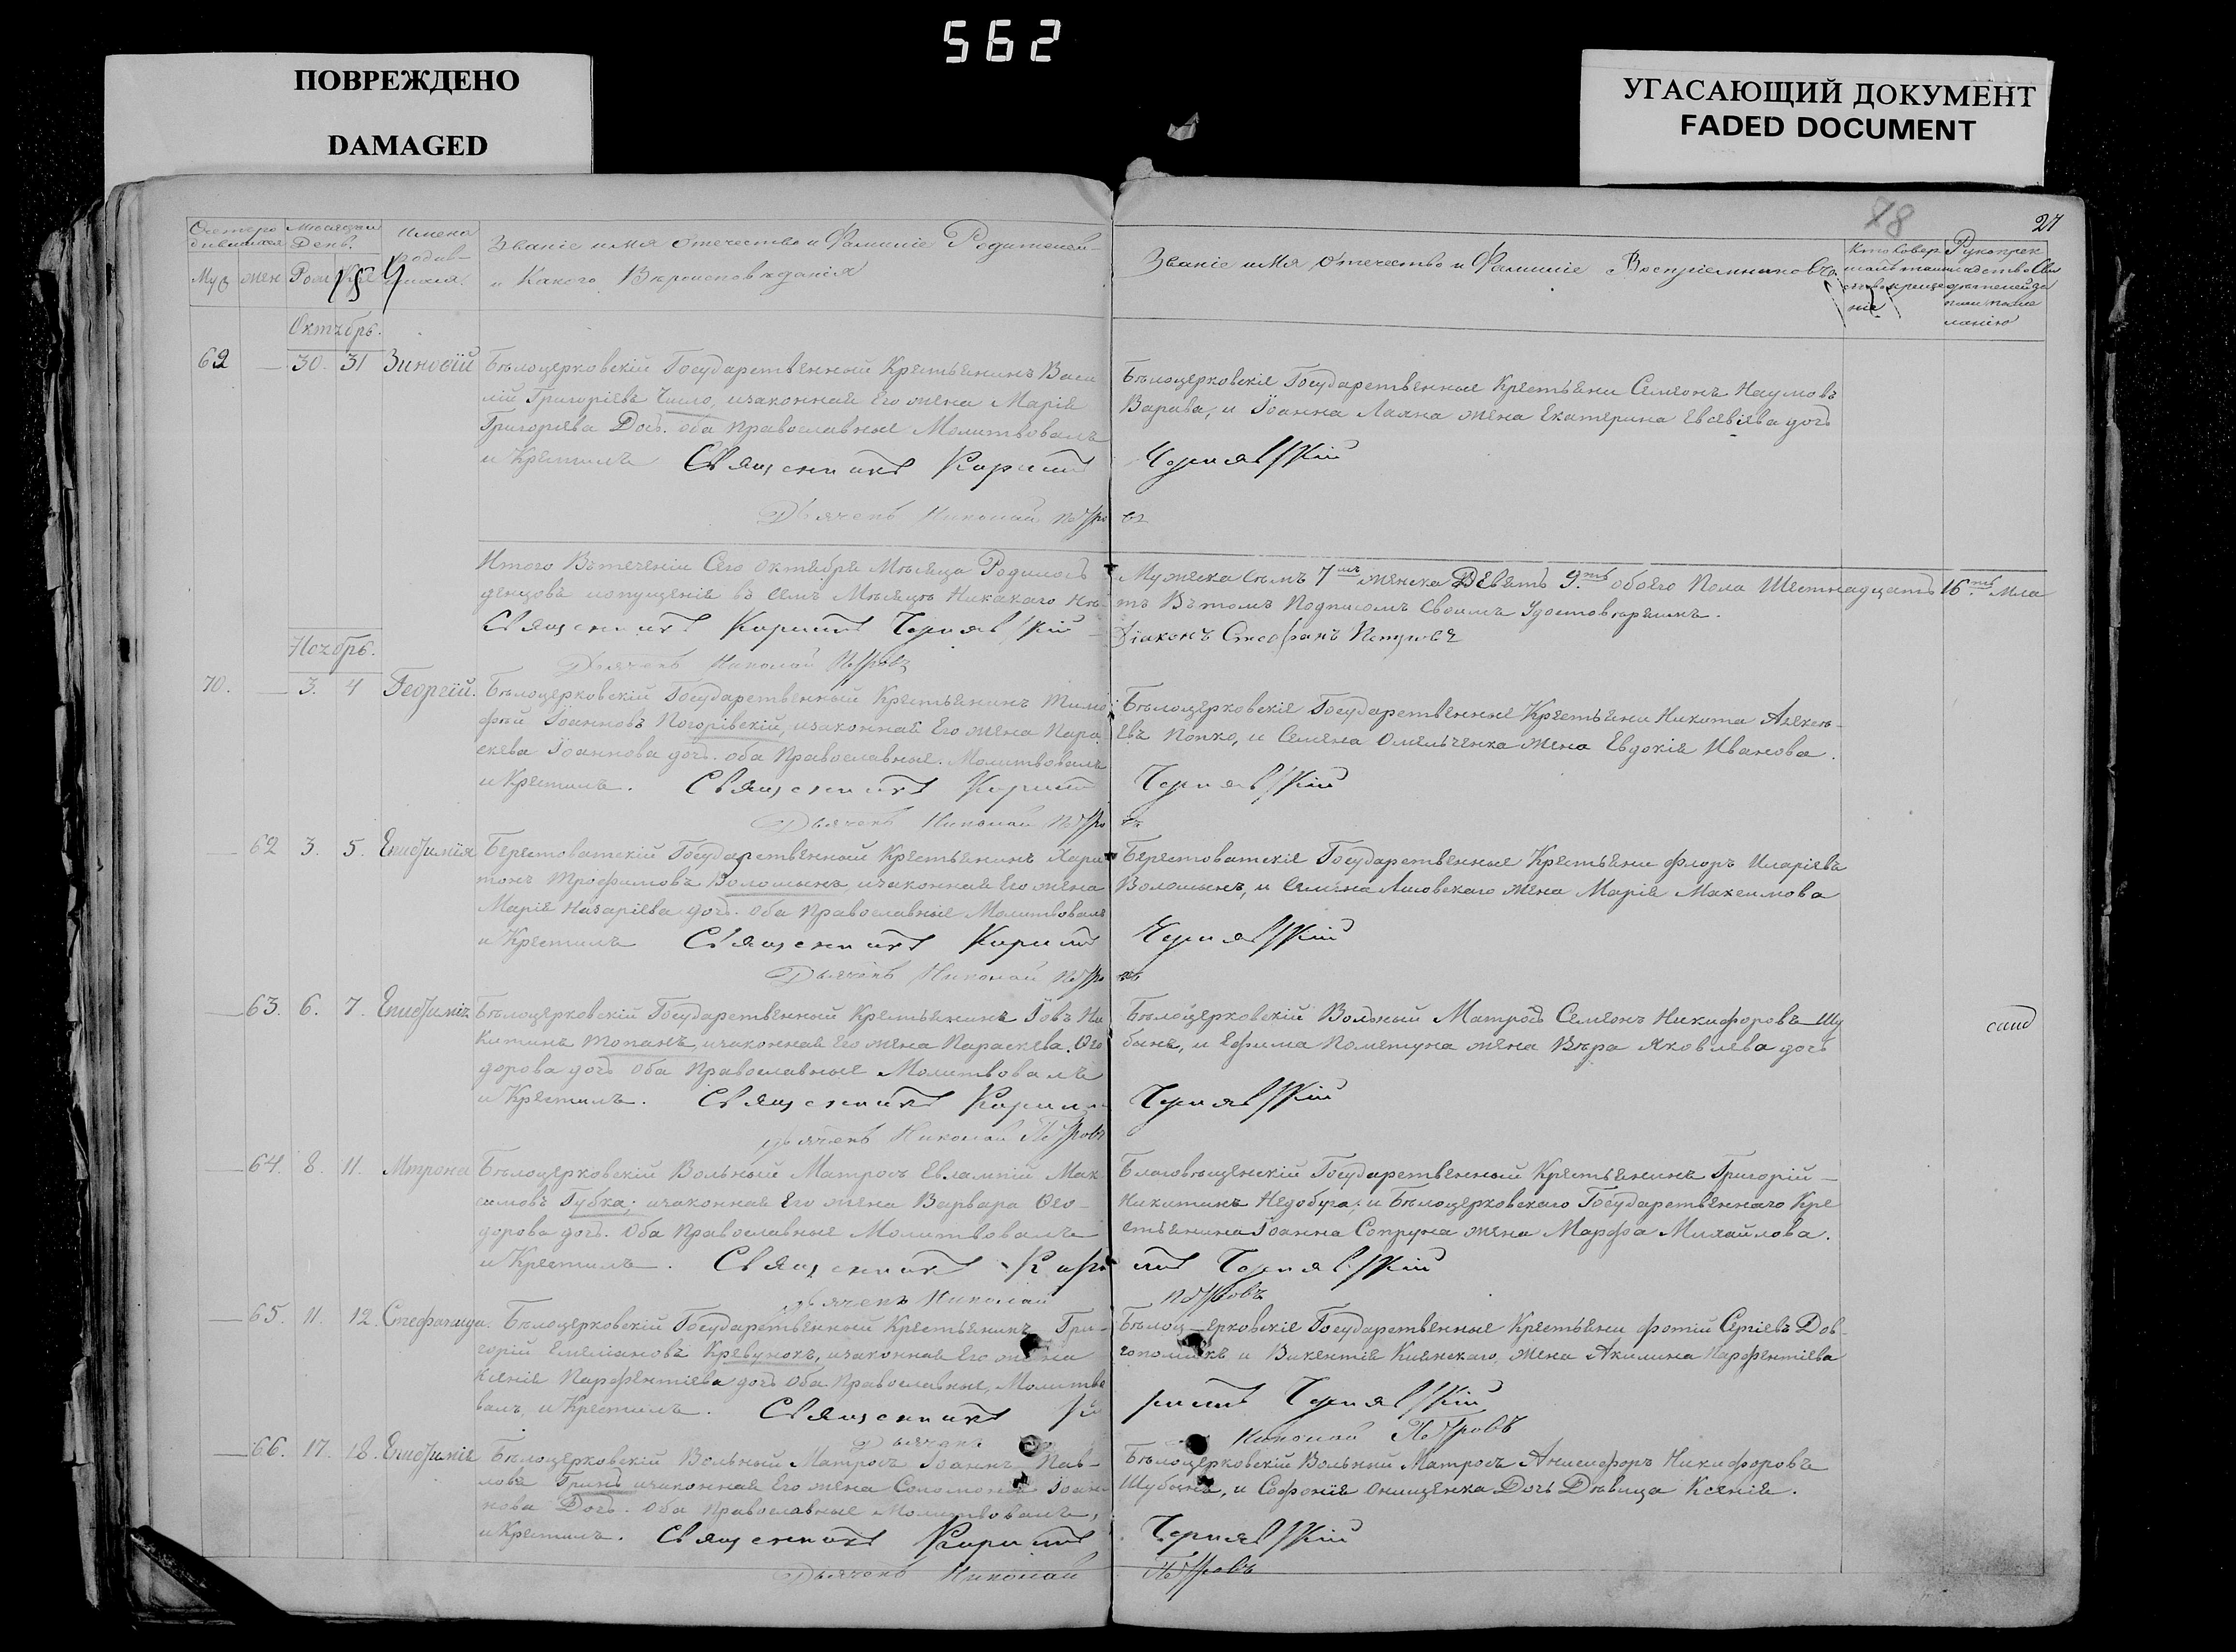 562
ПОВРЕЖДЕНО
DAMAGED
УГАСАЮЩИЙ ДОКУМЕНТ
FADED DOCUMENT
28
27
Муз жен
Званіе имя отечество и Фамиліе Родителей
и Какого Вѣроисповѣданія
Званіе имя отечество и Фамиліе Воспріемниковъ
Октябрь.
69 — 30. 31 Зиновій Бѣлоцерковскій Государственный Крестьянинъ Васи
лій Григоріевъ Число, изаконная Его жена Марія
Григорьева Дочь. оба Православные Молитвовалъ
и Крестилъ Священникъ Кирилъ
Дьячекъ Николай Петро
Бѣлоцерковскіе Государственные Крестьяни Семеонъ Наумовъ
Варава, и Іоанна жена Екатерина Евсевіева дочь
Чернявскій
въ
Итого Вътеченіи Сего Октября Мѣсяца Родилось
денцовъ и опущенія въ семъ Мѣсяцѣ Никакого Нѣ-
Священникъ Кирилъ Чернявскій
Дьячекъ Николай Петровъ
Мужеска Семъ 7мъ женска Девять 9.ть обоего Пола Шестнадцать 16.ть Мла
тъ Вътомъ Подписомъ Своимъ Удостовѣряемъ.
Діаконъ Стефанъ Петровъ
Ноябрь.
70. — 3. 4 Георгій. Бѣлоцерковскій Государственный Крестьянинъ Тимо
фѣй Іоанновъ Погорівскій, изаконная Его жена Пара
скева Іоаннова дочь. оба Православные. Молитвовалъ
и Крестилъ. Священникъ Кирилъ
Дьячекъ Николай Петро
Бѣлоцерковскіе Государственные Крестьяни Никита Алексѣ-
евъ Попко, и Семена Омельченка жена Евдокія Иванова.
Чернявскій
въ
— 62 3. 5. Евфимія Берестоватскій Государственный Крестьянинъ Хари
тонъ Трофимовъ Волошынъ, изаконная Его жена
Марія Назаріева дочь. оба Православные Молитвовалъ
и Крестилъ Священникъ Кирилъ
Дьячекъ Николай Петро
Берестоватскіе Государственные Крестьяни Флоръ Иларіевъ
Волошынъ, и Семена Лисовскаго жена Марія Максимова
Чернявскій
въ
— 63. 6. 7. Евфимія Бѣлоцерковскій Государственный Крестьянинъ Іовъ Ни
китинъ Топанъ, изаконная Его жена Параскева Ѳео
дорова дочь оба Православные Молитвовалъ
и Крестилъ. Священникъ Кирилъ
Дьячекъ Николай Петровъ
Бѣлоцерковскій Вольный Матросъ Семеонъ Никифоровъ Шу
бынъ, и Ефима Пометуна жена Вѣра Яковлева дочь
Чернявскій
— 64. 8. 11. Мтрона Бѣлоцерковскій Вольный Матросъ Евлампій Мак
симовъ Губка; изаконная Его жена Варвара Ѳео-
дорова дочь. Оба Православные Молитвовалъ
и Крестилъ. Священникъ Кири
Дьячекъ Николай
Благовѣщенскій Государственный Крестьянинъ Григорій —
Никитинъ Недобуга; и Бѣлоцерковскаго Государственнаго Кре
стьянина Іоанна Сопруна жена Марфа Михайлова.
лъ Чернявскій
Петровъ
— 65. 11. 12. Стефанида. Бѣлоцерковскій Государственный Крестьянинъ Гри-
горій Емеліановъ Кревунокъ, изаконная Его жена
Ксенія Парфентіева дочь Оба Православные, Молитво
валъ и Крестилъ. Священникъ Ки
Дьячекъ
Бѣлоцерковскіе Государственные Крестьяни Фотій Сергіевъ Дов-
и Викентія Киянскаго, жена Акилина Парфентіева
рилъ Чернявскій
Николай Петровъ
— 66. 17. 18. Евфимія Бѣлоцерковскій Вольный Матросъ Іоаннъ Пав-
ловъ Гринь изаконная Его жена Соломонія Іоан
нова Дочь. Оба Православные Молитвовалъ,
и Крестилъ. Священникъ Кирилъ
Дьячекъ Николай
Бѣлоцерковскій Вольный Матросъ Анисифоръ Никифоровъ
Шубына, и Софонія Онищенка Дочь Дѣвица Ксенія.
Чернявскій
Петровъ